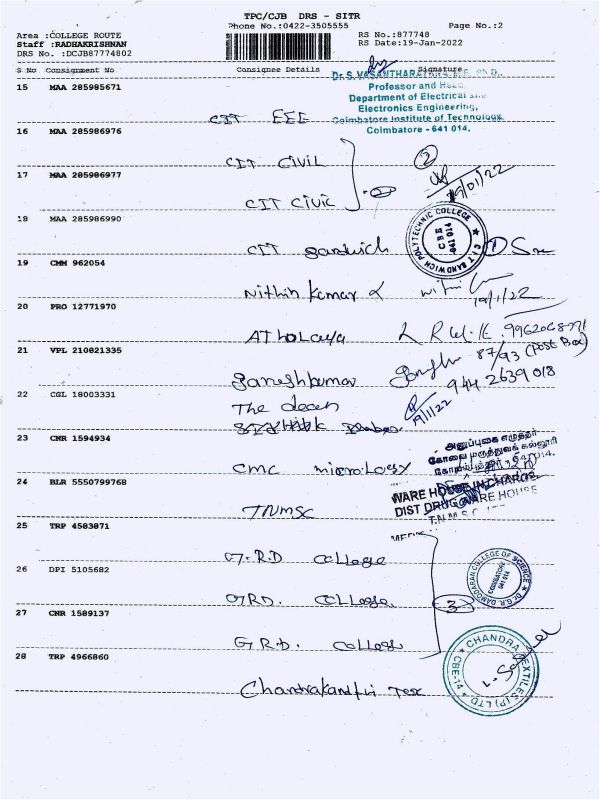 TPC/CJB DRS - SITR
Phone No.:0422-3505555
Page No.:2
Area :COLLEGE ROUTE
Staff :RADHAKRISHNAN
DRS No. :DCJB87774802
RS No.:877748
RS Date:19-Jan-2022
S No Consignment No Consignee Details Signature
15 MAA 285985671
CIT EEE
Professor and Head,
Department of Electrical and
Electronics Engineering,
Coimbatore Institute of Technology,
Coimbatore - 641 014.
16 MAA 285986976
CIT CIVIL
2
17 MAA 285986977
CIT CIVIC
19/01/22
18 MAA 285986990
CIT Sandwich
CIT SANDWICH POLYTECHNIC COLLEGE
CBE
641 014
19 CMM 962054
Nithin Kumar
19/1/22
20 PRO 12771970
AThoLaya
21 VPL 210821335
Ganeshkumar
87/93 (Post Box)
944 2639 018
22 CGL 18003331
The dean
19/1/22
23 CNR 1594934
CMC microLogy
அனுப்புகை எழுத்தர்
கோவை மருத்துவக் கல்லூரி
24 BLR 5550799768
TNMSC
WARE HOUSE IN CHARGE
DIST DRUG WARE HOUSE
25 TRP 4583871
G.R.D college
26 DPI 5105682
GRD. college
3
Dr.G.R. DAMODARAN COLLEGE OF SCIENCE
COIMBATORE
641 014
27 CNR 1589137
G.R.D. college
28 TRP 4966860
Chandrakanthi Tex
CHANDRA TEXTILES (P) LTD
CBE-14